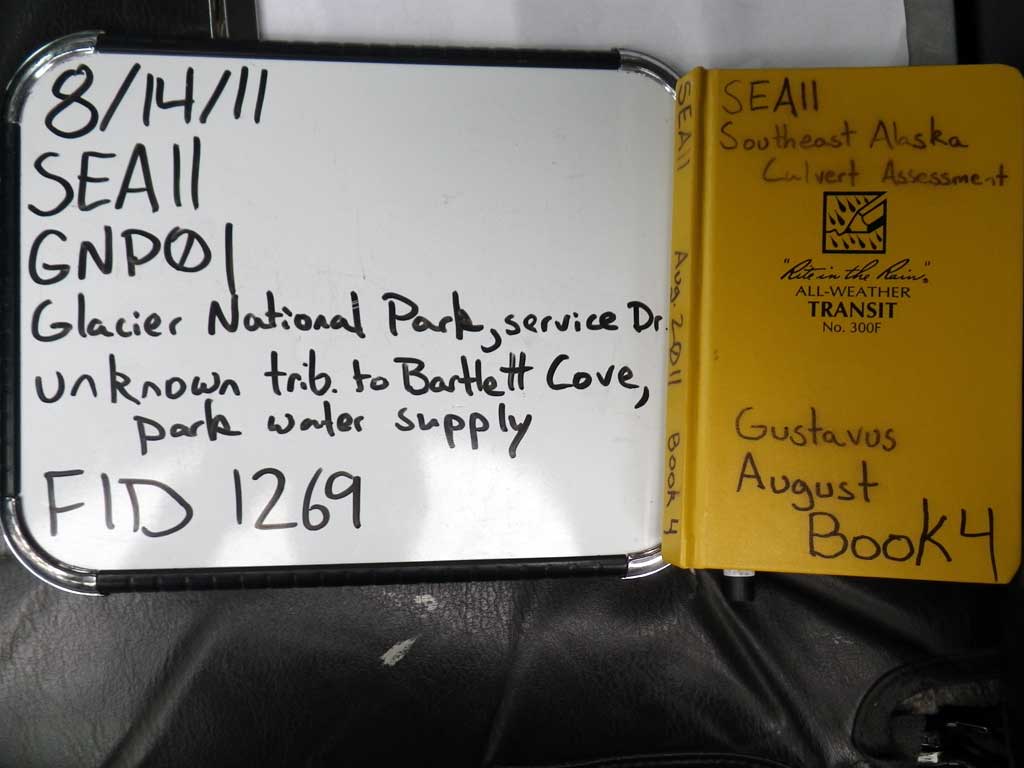 8/14/11
SEA11
GNP01
Glacier National Park, service Dr.
unknown trib. to Bartlett Cove,
park water supply
FID 1269
SEA11 Aug. 2011 Book 4
SEA11
Southeast Alaska
Culvert Assessment
"Rite in the Rain"
ALL-WEATHER
TRANSIT
No. 300F
Gustavus
August
Book 4